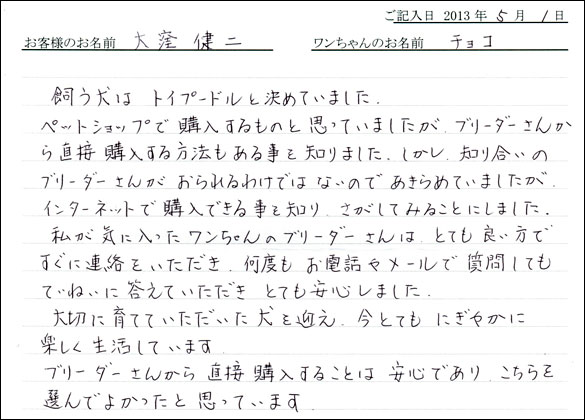 ご記入日 2013年 5月 1日
お客様のお名前 大窪 健二 ワンちゃんのお名前 チョコ
飼う犬は トイプードルと決めていました.
ペットショップで購入するものと思っていましたが、ブリーダーさんか
ら直接購入する方法もある事を知りました. しかし、知り合いの
ブリーダーさんが おられるわけでは ないので あきらめていましたが、
インターネットで購入できる事を知り、さがしてみることにしました.
私が気に入ったワンちゃんのブリーダーさんは、とても良い方で
すぐに連絡をいただき、何度も お電話やメールで質問しても
ていねいに答えていただき とても安心しました.
大切に育てていただいた犬を迎え、今とても にぎやかに
楽しく生活しています
ブリーダーさんから 直接購入することは 安心であり、こちらを
選んでよかったと思っています.